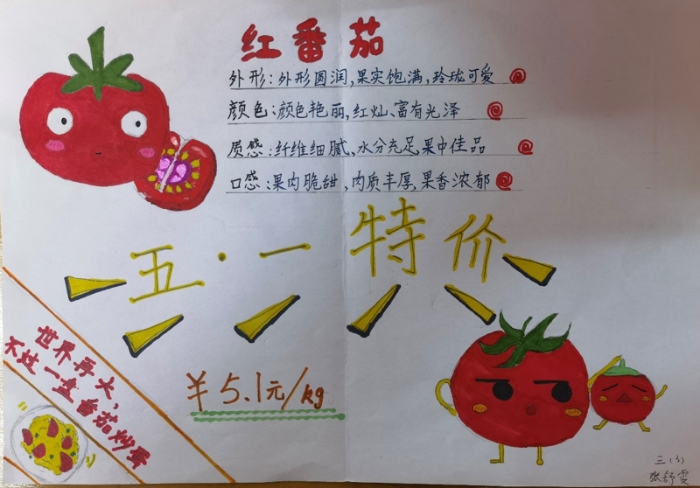 红番茄
外形:外形圆润,果实饱满,玲珑可爱
颜色:颜色艳丽,红灿、富有光泽
质感:纤维细腻,水分充足果中佳品
口感:果肉脆甜,肉质丰厚,果香浓郁
五·一特价
¥5.1元/kg
世界再大,
不过一盘番茄炒蛋
三(3)
张舒雯